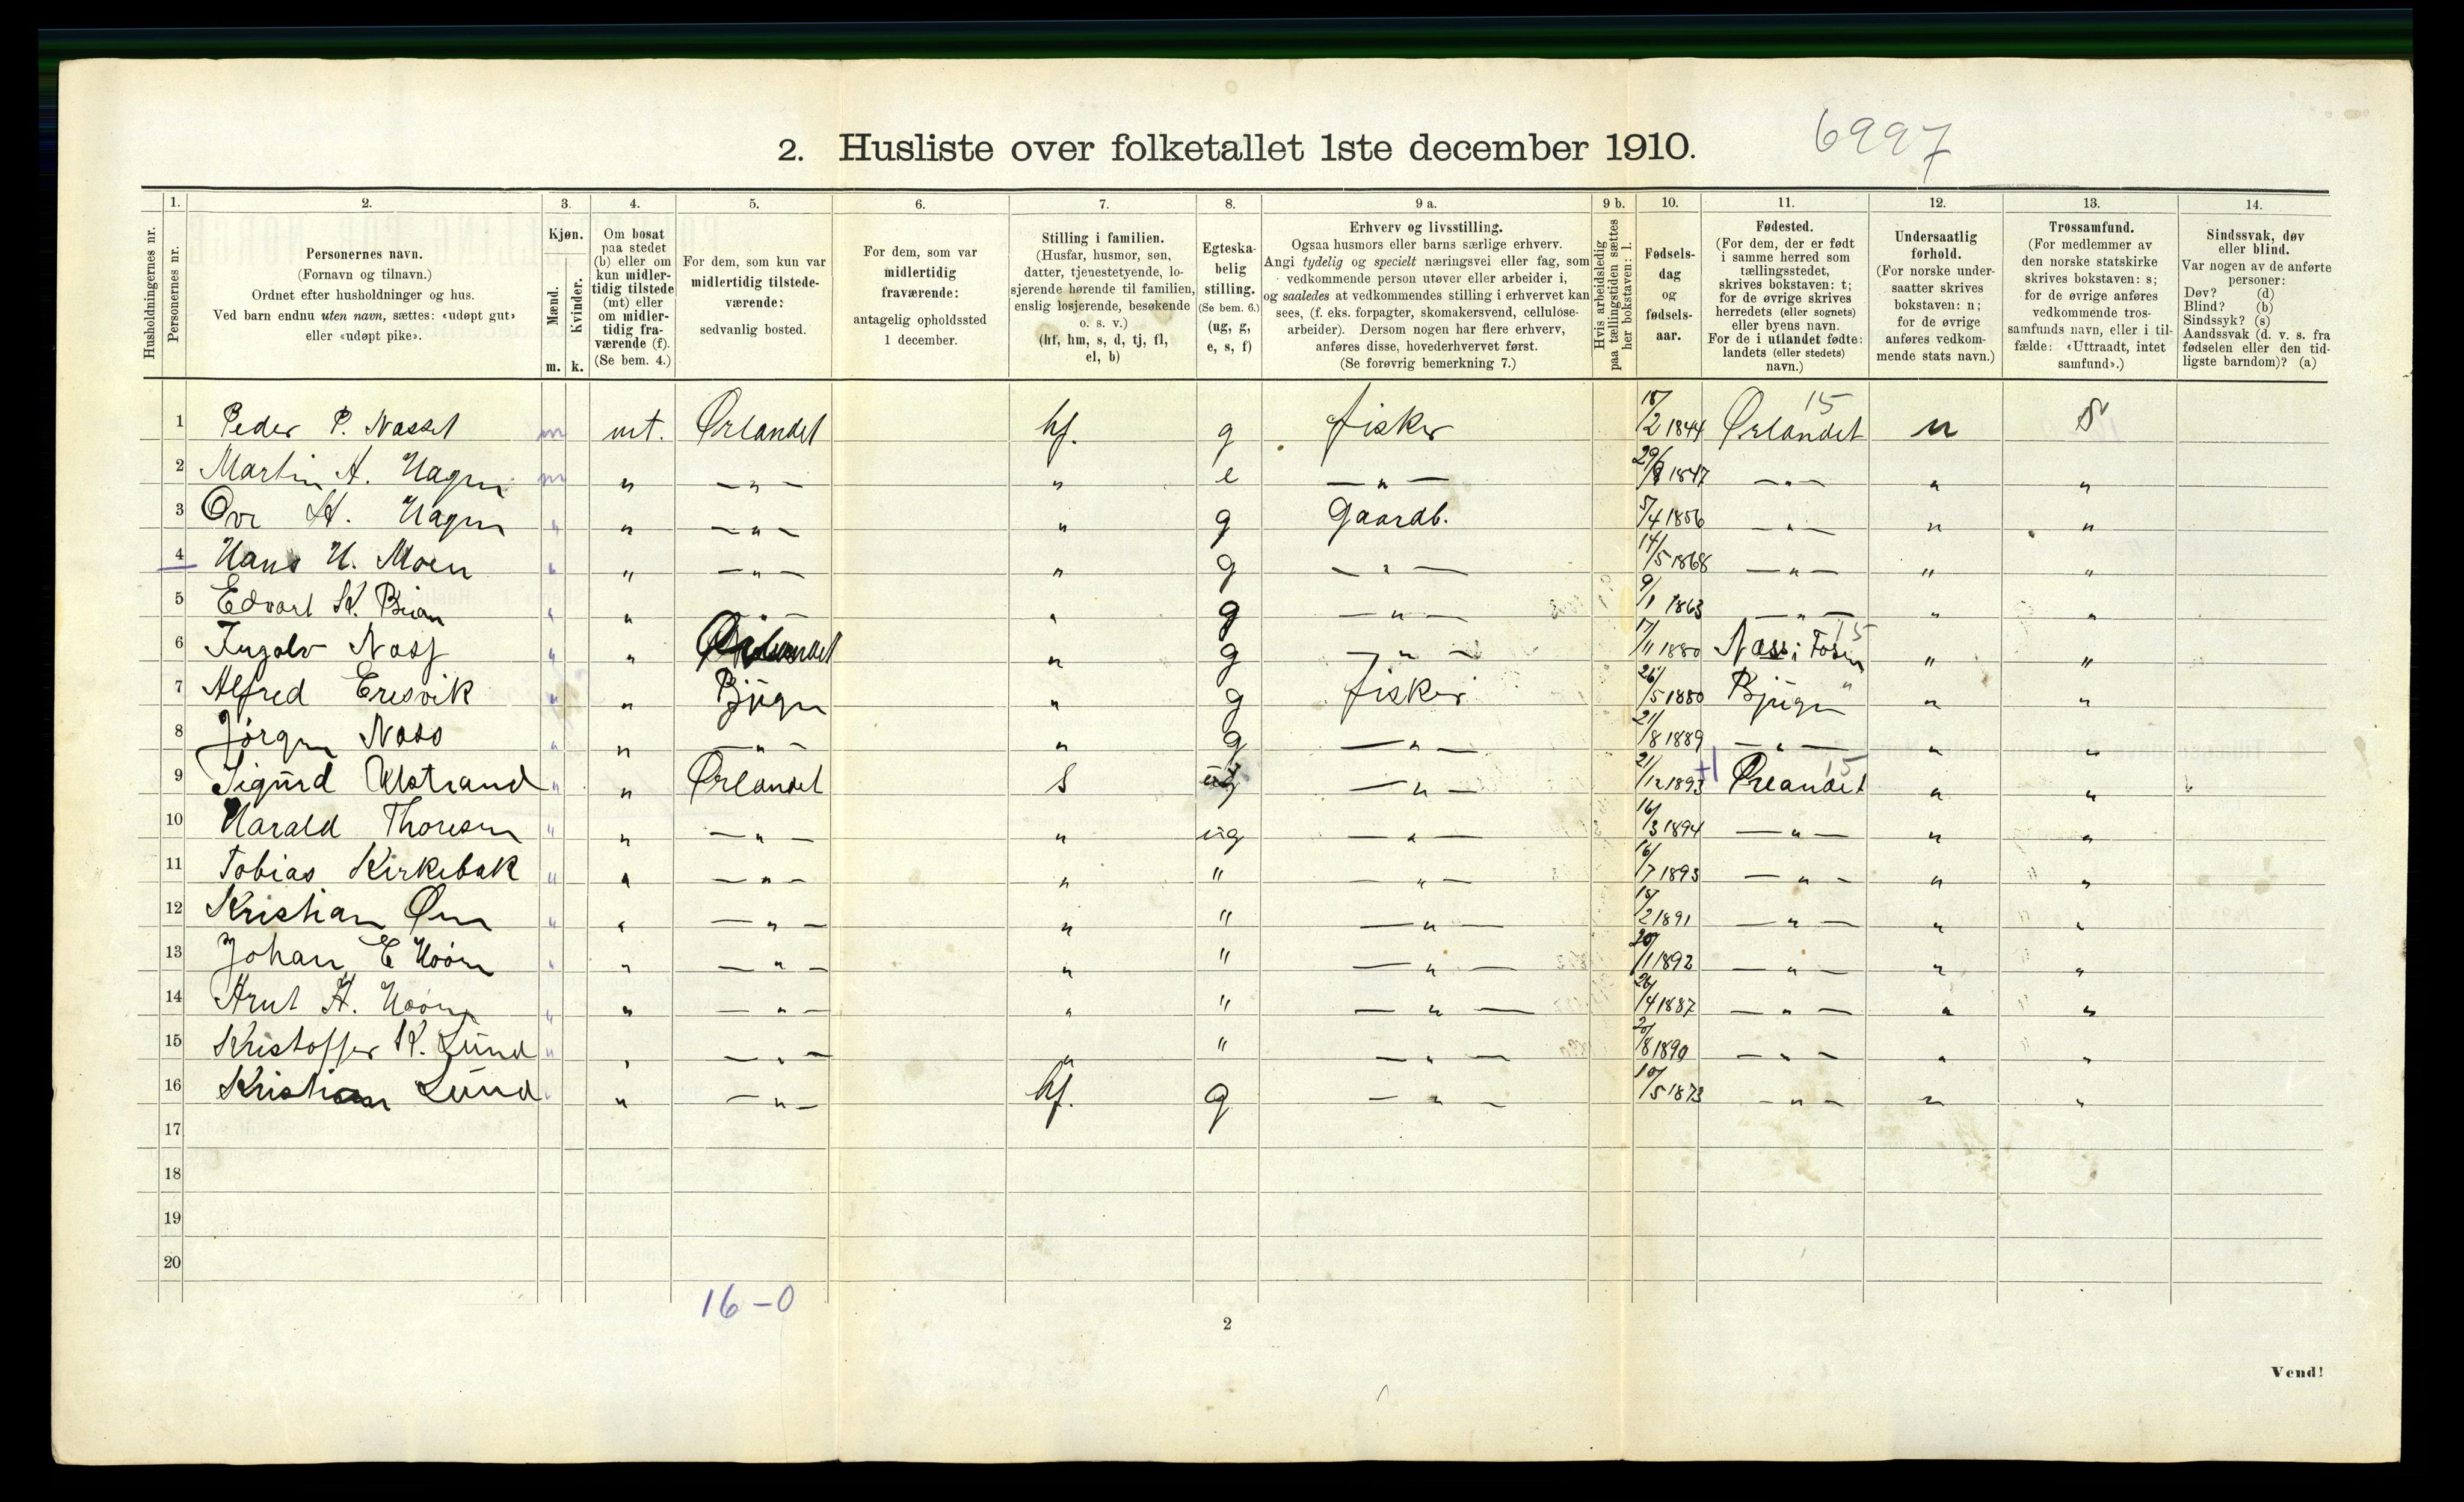 6997
2. Husliste over folketallet 1ste december 1910.
1. 2. 3. 4. 5. 6. 7. 8. 9 a. 9 b. 10. 11. 12. 13. 14.
Husholdningernes nr.
Personernes nr.
Personernes navn.
(Fornavn og tilnavn.)
Ordnet efter husholdninger og hus.
Ved barn endnu uten navn, sættes: «udøpt gut»
eller «udøpt pike».
Kjøn.
Mænd.
Kvinder.
m. k.
Om bosat
paa stedet
(b) eller om
kun midler-
tidig tilstede
(mt) eller
om midler-
tidig fra-
værende (f).
(Se bem. 4.)
For dem, som kun var
midlertidig tilstede-
værende:
sedvanlig bosted.
For dem, som var
midlertidig
fraværende:
antagelig opholdssted
1 december.
Stilling i familien.
(Husfar, husmor, søn,
datter, tjenestetyende, lo-
sjerende hørende til familien,
enslig losjerende, besøkende
o. s. v.)
(hf, hm, s, d, tj, fl,
el, b)
Egteska-
belig
stilling.
(Se bem. 6.)
(ug, g,
e, s, f)
Erhverv og livsstilling.
Ogsaa husmors eller barns særlige erhverv.
Angi tydelig og specielt næringsvei eller fag, som
vedkommende person utøver eller arbeider i,
og saaledes at vedkommendes stilling i erhvervet kan
sees, (f. eks. forpagter, skomakersvend, cellulose-
arbeider). Dersom nogen har flere erhverv,
anføres disse, hovederhvervet først.
(Se forøvrig bemerkning 7.)
Hvis arbeidsledig
paa tællingstiden sættes
her bokstaven: l.
Fødsels-
dag
og
fødsels-
aar.
Fødested.
(For dem, der er født
i samme herred som
tællingsstedet,
skrives bokstaven: t;
for de øvrige skrives
herredets (eller sognets)
eller byens navn.
For de i utlandet fødte:
landets (eller stedets)
navn.)
Undersaatlig
forhold.
(For norske under-
saatter skrives
bokstaven: n;
for de øvrige
anføres vedkom-
mende stats navn.)
Trossamfund.
(For medlemmer av
den norske statskirke
skrives bokstaven: s;
for de øvrige anføres
vedkommende tros-
samfunds navn, eller i til-
fælde: «Uttraadt, intet
samfund».)
Sindssvak, døv
eller blind.
Var nogen av de anførte
personer:
Døv? (d)
Blind? (b)
Sindssyk? (s)
Aandssvak (d. v. s. fra
fødselen eller den tid-
ligste barndom)? (a)
1 Peder P. Nasset m mt. Ørlandet hf. g fisker 18/2 1844 Ørlandet 15 n S
2 Martin A. Hagen m " — " — " e — " — 1847 — " — " "
3 Ove H. Hagen " " — " — " g Gaardb. 5/4 1856 — " — " "
4 Hans H. Moen " " — " — " g — " — 14/5 1868 — " — " "
5 Edvart K. " " — " — " g — " — 9/1 1863 — " — " "
6 Ingolv Nass " " " g — " — 17/11 1880 Næss i Fosen 15 " "
7 Alfred Eresvik " " Bjugn " g fisker 26/5 1880 Bjugn " " "
8 Jørgen Nass " " — " — " g — " — 21/8 1889 — " — " "
9 Sigurd Ulstrand " " Ørlandet S ug — " — 21/12 1893 Ørlandet 15 " "
10 Harald Thoresen " " — " — " ug — " — 16/3 1894 — " — " "
11 Tobias Kirkebak " " — " — " " — " — 16/7 1893 — " — " "
12 Kristian Øien " " — " — " " — " — 18/2 1891 — " — " "
13 Johan E Hoøen " " — " — " " — " — 20/1 1892 — " — " "
14 Arnt A. Hoøen " " — " — " " — " — 26/4 1887 — " — " "
15 Kristoffer K. Lund " " — " — " " — " — 20/8 1890 — " — " "
16 Kristian Lund " " — " — hf. g — " — 10/5 1873 — " — " "
17
18
19
20
16 – 0
2
Vend!